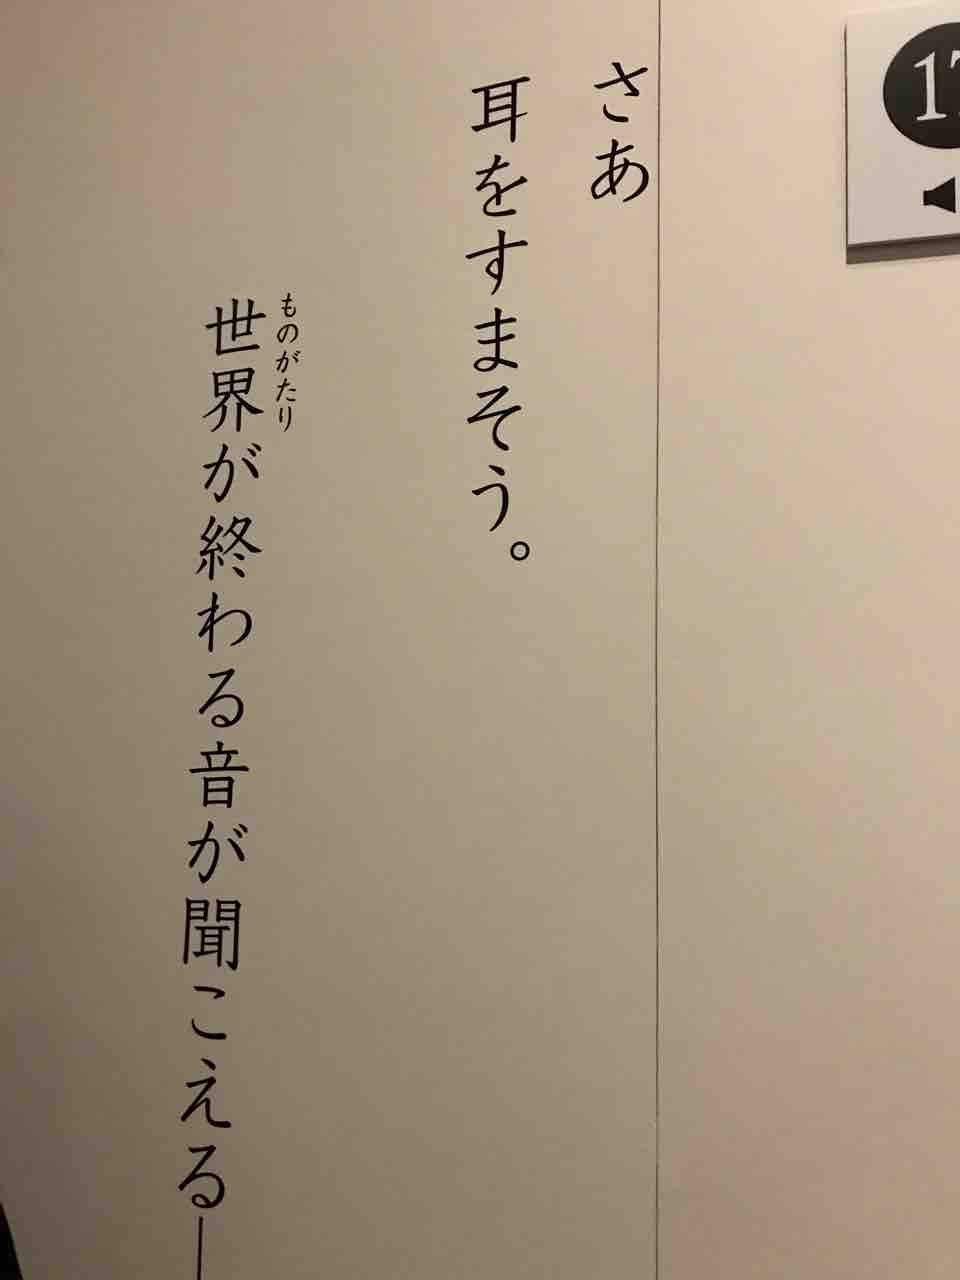 さあ
耳をすまそう。
ものがたり
世界が終わる音が聞こえる―